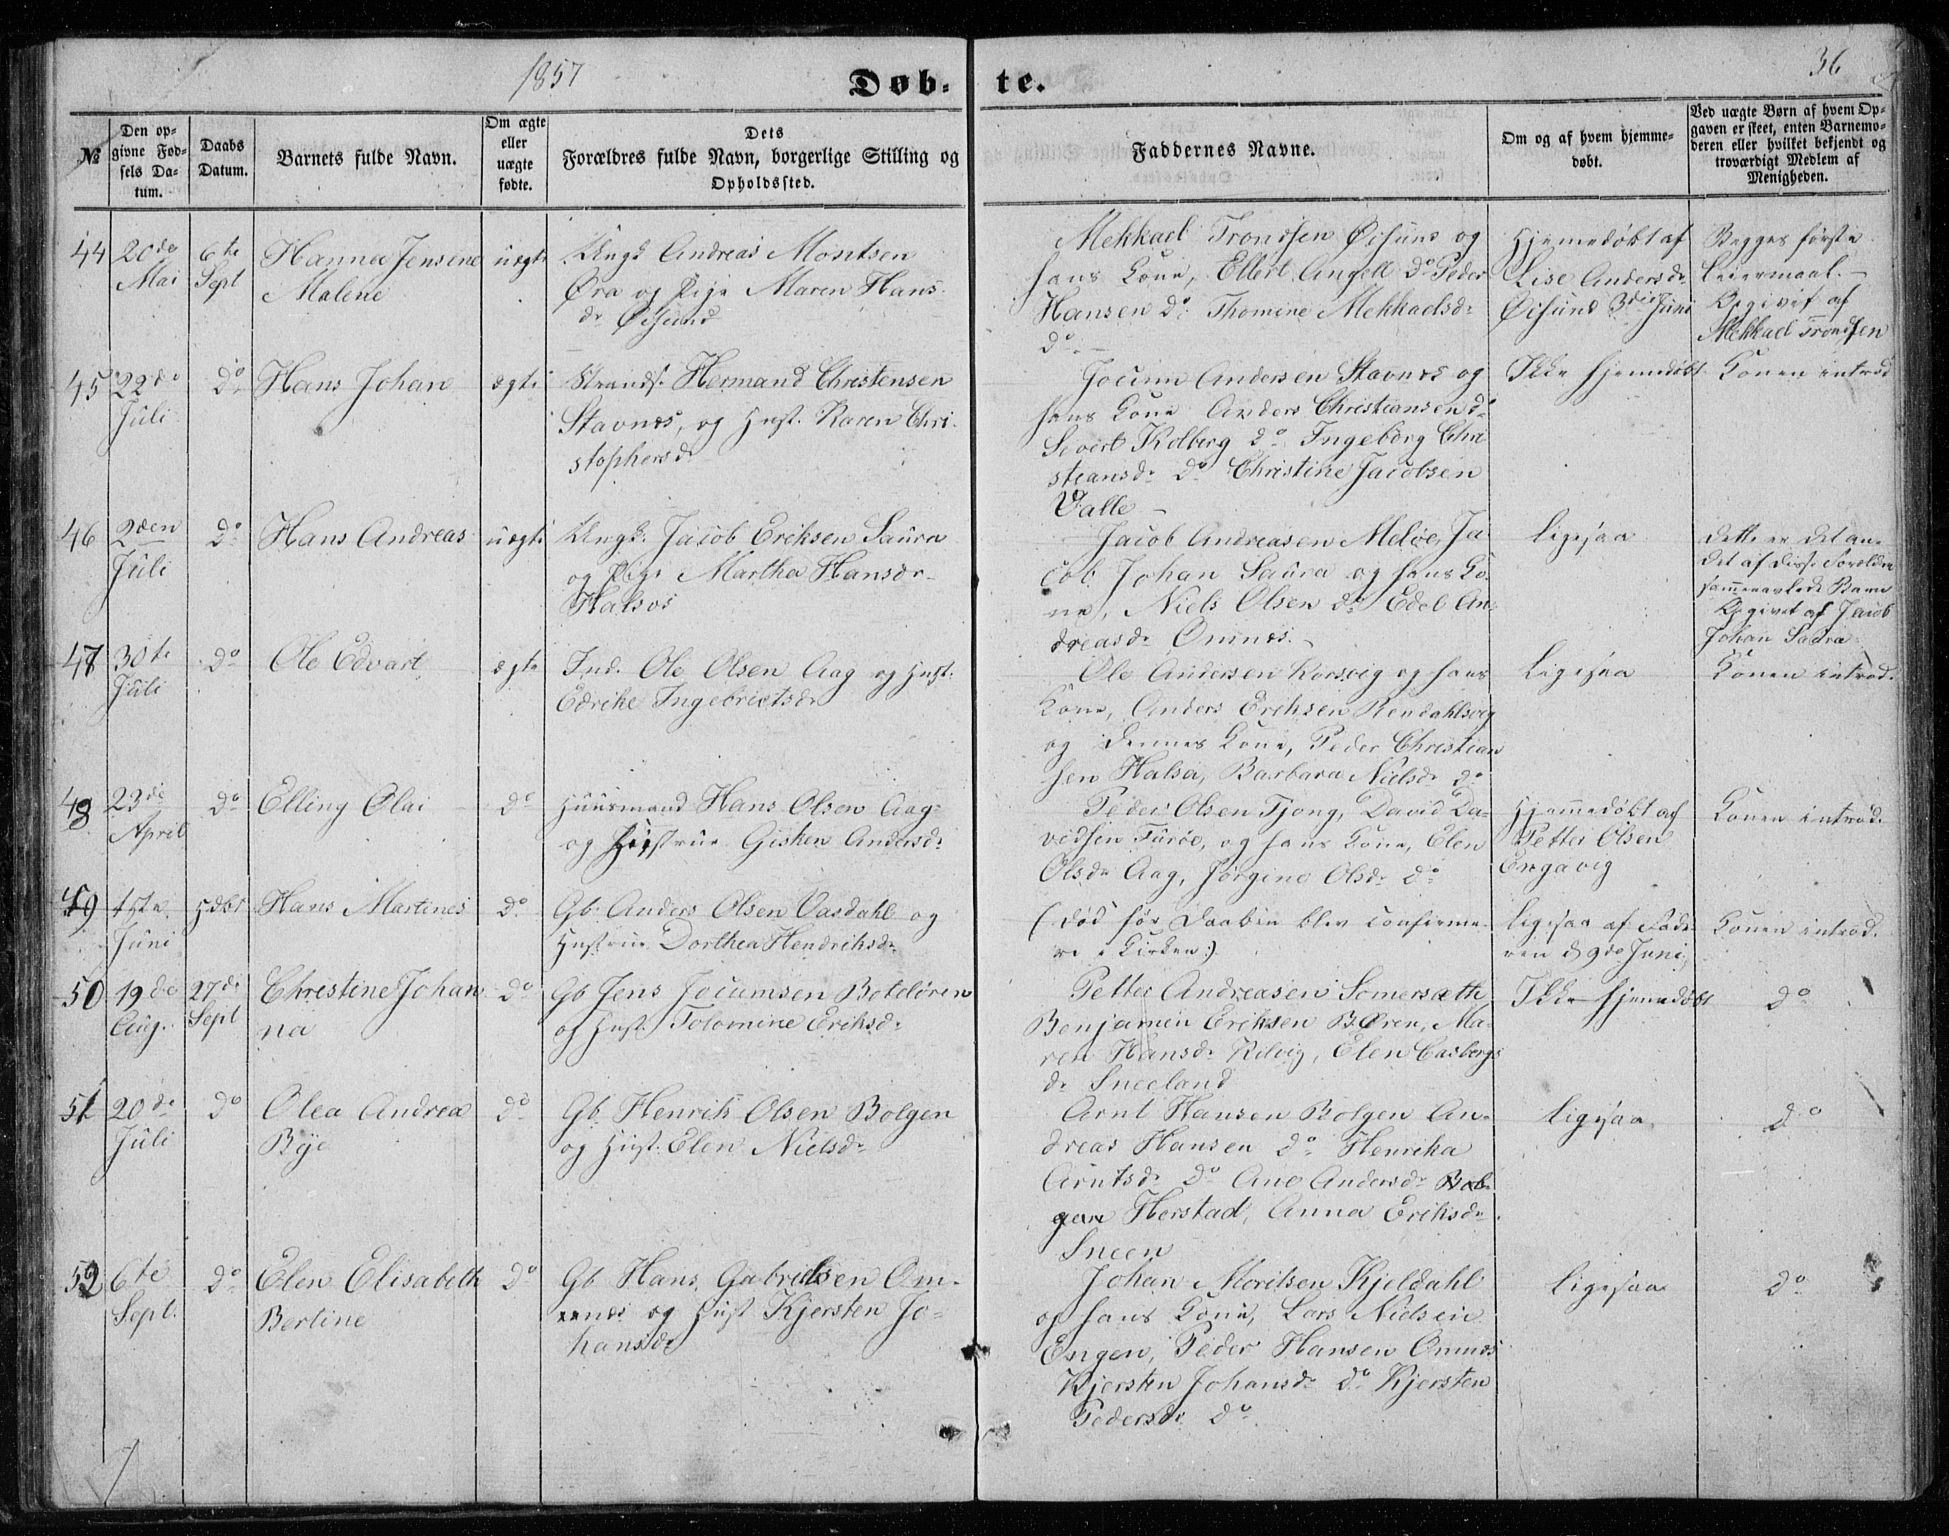 1857
Døb-te.
36
№
Den opgivne Fødsels Datum.
Daabs Datum.
Barnets fulde Navn.
Om ægte eller uægte fødte.
Dets Forældres fulde Navn, borgerlige Stilling og Opholdssted.
Faddernes Navne.
Om og af hvem hjemmedøbt.
Ved uægte Børn af hvem Opgaven er skeet, enten Barnemoderen eller hvilket bekjendt og troværdigt Medlem af Menigheden.
44
20de
Mai
6te
Sept
Hanna Jensine
Malene
uægte
Ungk Andreas Moritsen
Øra og Pige Maren Hans
dr Øisund
Mekkael Trondsen Øisund og
hans Kone, Ellert Angell do Peder
Hansen do Thomine Mekkaelsdr
do
Hjemedøbt af
Lise Andersdr
Øisund 3die Juni
Begges første
Leiermaal.
Opgivet af
Mekkael Trondsen
45
22de
Juli
do
Hans Johan
ægte
Strands. Hermand Christensen
Stavnes, og Hust. Karen Chri
stophersdr
Jocum Andersen Stavnes og
hans Kone Anders Christiansen do
Sivert Kolberg do Ingeborg Chri
stiansdr do Christine Jacobsen
Valle
Ikke hjemedøbt
Konen introd
46
2den
Juli
do
Hans Andreas
uægte
Ungk. Jacob Eriksen Saura
og Pige Martha Hansdr
Halsos
Jacob Andreasen Meløe, Ja
cob Johan Saura og hans Ko
ne, Niels Olsen do Edel An
dreasdr Omnes.
Ligesaa
Dette er det an
det af disse Foreldre
sammenavlede Barn
Opgivet af Jacob
Johan Saura
47
30te
Juli
do
Ole Edvart
ægte
Ind. Ole Olsen Aag og Hust.
Edrike Ingebrictsdr
Ole Andersen Korsvig og hans
Kone, Anders Eriksen Rendahlsvig
og dennes Kone, Peder Christian
sen Halsa, Barbara Nielsdr do
Ligesaa
Konen introd.
48
23de
April
do
Elling Olai
do
Huusmand Hans Olsen Aag
og Hustrue Gisken Andersdr
Peder Olsen Tjong, David Da-
vidsen Turøe, og hans Kone, Elen
Olsdr Aag, Jørgine Olsdr do
Hjemedøbt af
Petter Olsen
Engavig
Konen introd.
49
1ste
Juni
Hdbt
Hans Martines
do
Gb Anders Olsen Vasdahl og
Hustrue Dorthea Hendriksdr
(død før Daaben blev confirme-
re i Kirken:)
Ligesaa af Fade-
ren d 9de Juni,
Konen introd.
50
19de
Aug.
27de
Sept
Christine Johan
na
do
Gb Jens Jocumsen Botoløren
og Hust. Tolomine Eriksdr
Petter Andreasen Somersætte
Benjamin Eriksen BØren, Ma-
ren Hansdr Kilvig, Elen Casbergs
dr Sneeland
Ikke hjemedøbt
do
51
20de
Juli
do
Olea Andrea
Bye
do
Gb. Henrik Olsen Bolgen
og Hust. Elen Nielsdr
Arnt Hansen Bolgen An-
dreas Hansen do Henrika
Arntsdr do Ane Andersdr Bol-
gen Herstad, Anna Eriksdr
Sneen
Ligesaa
do
52
6te
Sept.
do
Elen Elisabeth
Berline
do
Gb Hans Gabrielsen Om-
nes og Hust Kjersten Jo-
hansdr
Johan Moritsen Kjeldahl
og hans Kone, Lars Nielsen
Engen, Peder Hansen Omnes
Kjersten Johansdr do Kjersten
Pedersdr do
Ligesaa
do